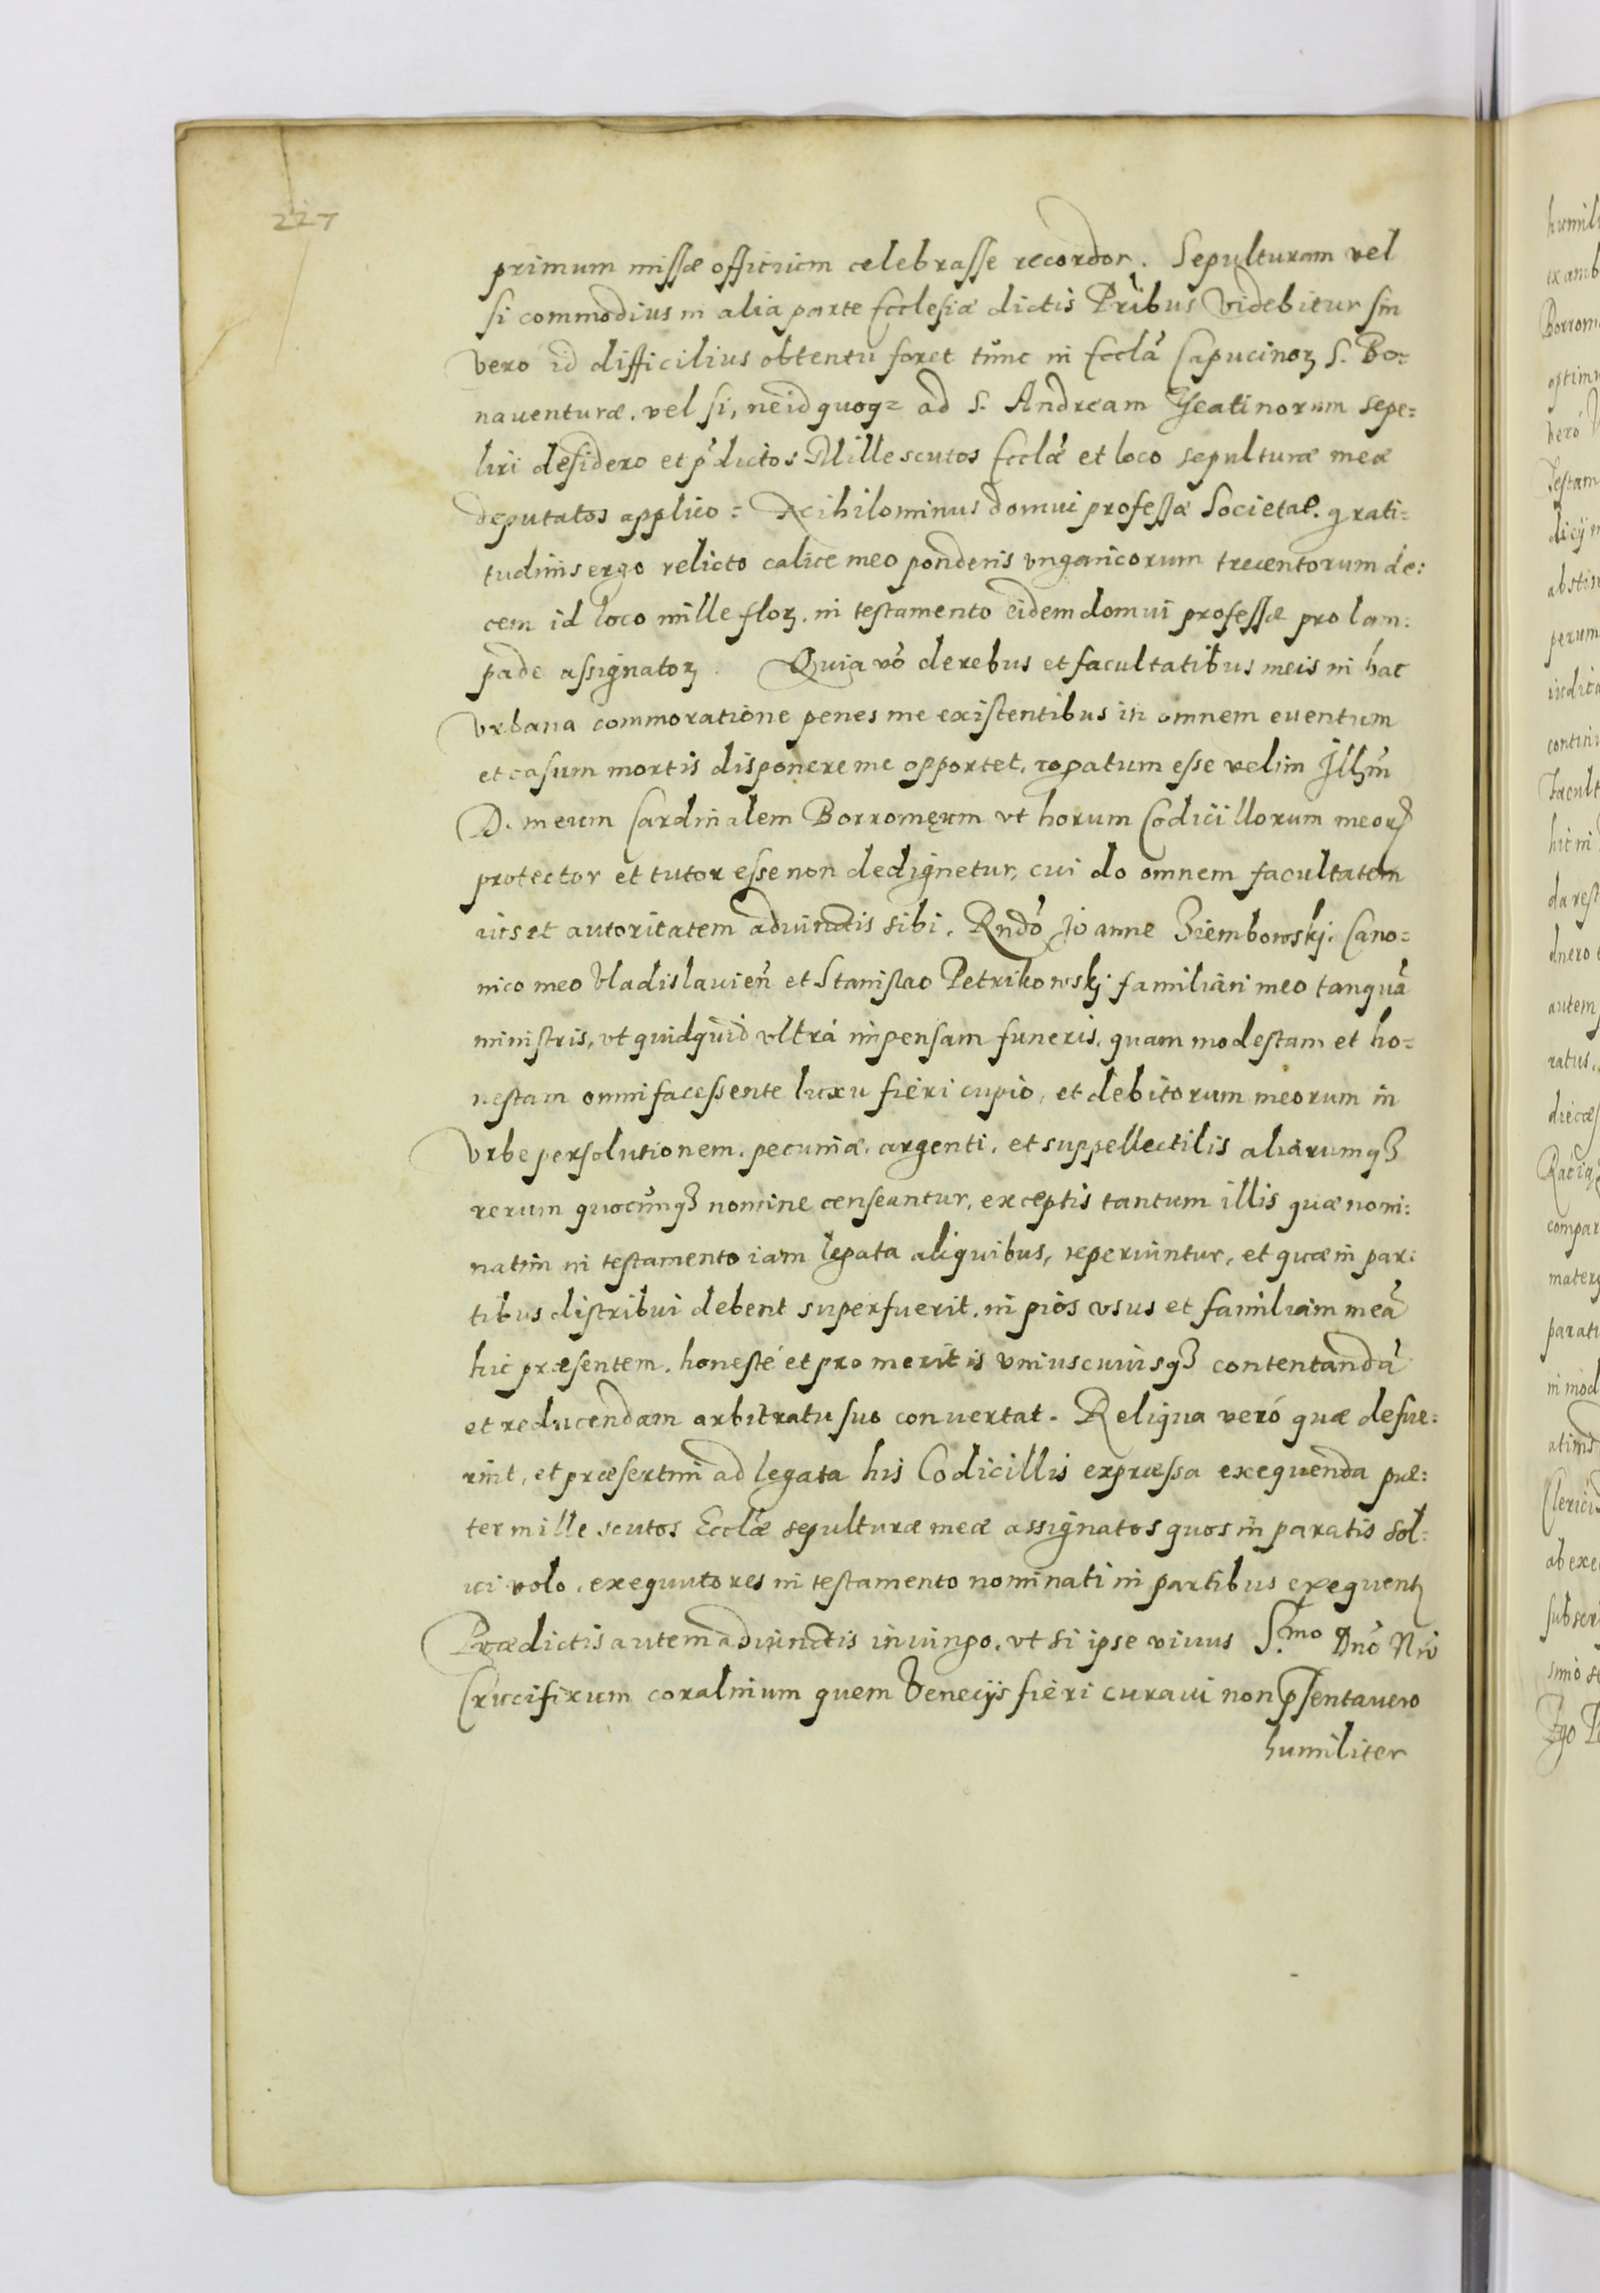 227
primum missæ officium celebrasse recordor. Sepulturam vel
si commodius in alia parte Ecclesiæ dictis Pribus videbitur sin
vero id difficilius obtentu foret tunc in Eccla Capucinoꝝ S. Bo=
nauenturæ. vel si, ne id quoq= ad S. Andream Theatinorum sepe=
liri desidero et p̃dictos Mille scutos Ecclæ et loco sepulturæ meæ
deputatos applico = Nihilominus domui professæ Societat. grati=
tudinis ergo relicto calice meo ponderis vngaricorum trecentorum de:
cem id loco mille floꝝ. in testamento eidem domui professæ pro lam:
pade assignatoꝝ. Quia vo de rebus et facultatibus meis in hac
vrbana commoratione penes me existentibus in omnem euentum
et casum mortis disponere me opportet, rogatum esse velim Illm̃
D. meum Cardinalem Borromęum vt horum Codicillorum meoꝝ
protector et tutor esse non dedignetur, cui do omnem facultatem
uts et autoritatem adiunctis sibi. Rndo Joanne Ziembowskj. Cano=
nico meo Vladislauien̄ et Stanislao Petrikowskj familiari meo tanquā
ministris, vt quidquid vltrà impensam funeris, quam modestam et ho=
nestam omni facessente luxu fieri cupio, et debitorum meorum in
vrbe persolutionem. pecuniæ. argenti, et suppellectilis aliarumqȝ
rerum quocunqȝ nomine censeantur, exceptis tantum illis quæ nomi:
natim in testamento iam legata aliquibus, reperiuntur, et quæ in par:
tibus distribui debent superfuerit, in pios vsus et familiam meā
hic præsentem, honesté et pro meritis vniuscuiusqȝ contentandā
et reducendam arbitratu suo conuertat. Reliqua veró quæ defue:
rint, et præsertim ad legata his Codicillis expressa exequenda præ:
ter mille scutos Ecclæ sepulturæ meæ assignatos quos in paratis sol:
ui volo, exequutores in testamento nominati in partibus exequentꝝ
Prædictis autem adiunctis iniungo, vt si ipse viuus S.mo Dno Nro
Crucifixum coralinum quem Venecijs fieri curaui non p̃sentauero
humiliter